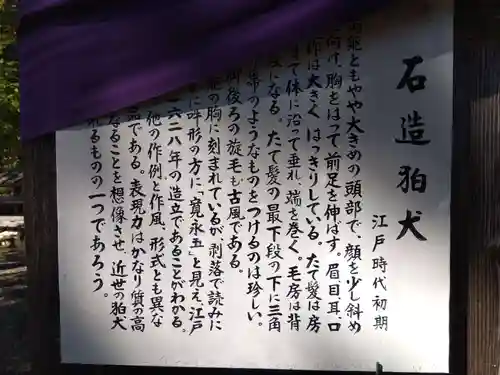 石造狛犬
江戸時代初期
両躯ともやや大きめの頭部で、顔を少し斜め
に向け、胸をはって前足を伸ばす。眉目耳、口
作は大きく はっきりしている。たて髪は房
て体に沿って垂れ、端を巻く。毛房は背
になる。たて髪の最下段の下に三角
帯のようなものをつけるのは珍しい。
後ろの旋毛も古風である。
の胸に刻まれているが剥落で読みに
に吽形の方に、「寛永五」と見え、江戸
六二八年の造立であることがわかる。
他の作例と作風、形式とも異な
品である。表現力はかなり質の高
なることを想像させ、近世の狛犬
れるものの一つであろう。